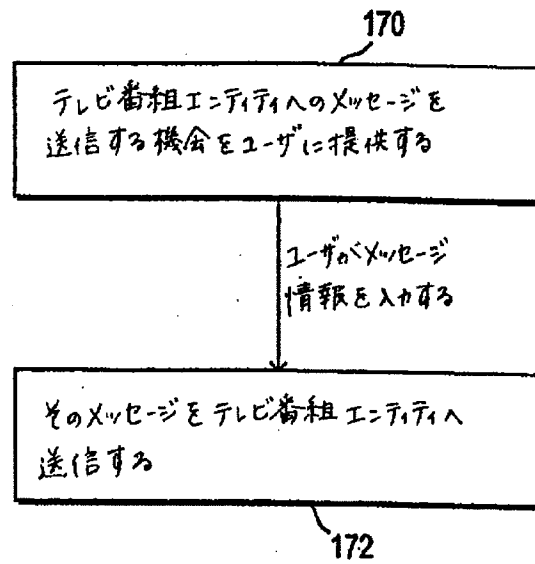 170
テレビ番組エンティティへのメッセージを
送信する機会をユーザに提供する
ユーザがメッセージ
情報を入力する
そのメッセージをテレビ番組エンティティへ
送信する
172